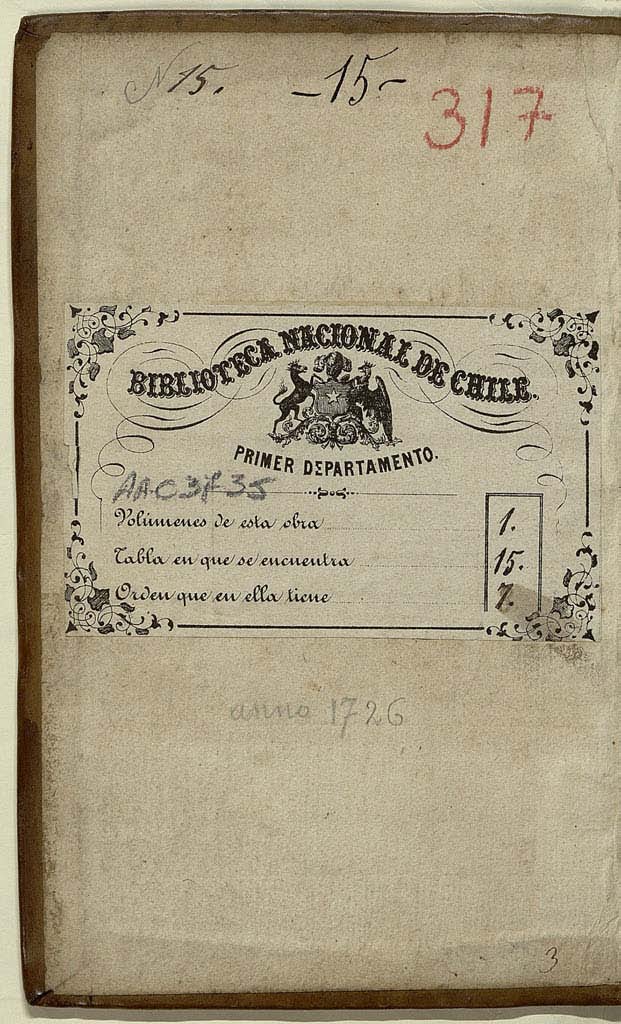 N 15. -15-
317
BIBLIOTECA NACIONAL DE CHILE.
PRIMER DEPARTAMENTO.
Volúmenes de esta obra 1.
Tabla en que se encuentra 15.
Orden que en ella tiene 7.
anno 1726
3